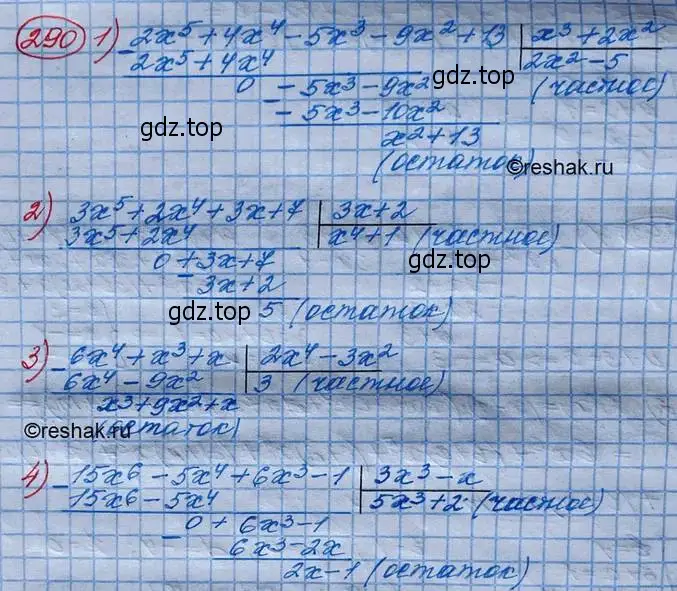 290 1) - 2x⁵ + 4x⁴ - 5x³ - 9x² + 13 | x³ + 2x²
2x⁵ + 4x⁴ | 2x² - 5
0 - - 5x³ - 9x² (частное)
gdz.top
- 5x³ - 10x²
gdz.top
x² + 13
(остаток)
©reshak.ru
2) 3x⁵ + 2x⁴ + 3x + 7 | 3x + 2
3x⁵ + 2x⁴ | x⁴ + 1 (частное)
0 + 3x + 7
gdz.top
- 3x + 2
gdz.top 5 (остаток)
3) - 6x⁴ + x³ + x | 2x⁴ - 3x²
6x⁴ - 9x² | 3 (частное)
x³ + 9x² + x
©reshak.ru
(остаток)
4) - 15x⁶ - 5x⁴ + 6x³ - 1 | 3x³ - x
15x⁶ - 5x⁴ | 5x³ + 2 (частное)
- 0 + 6x³ - 1
6x³ - 2x
2x - 1 (остаток)